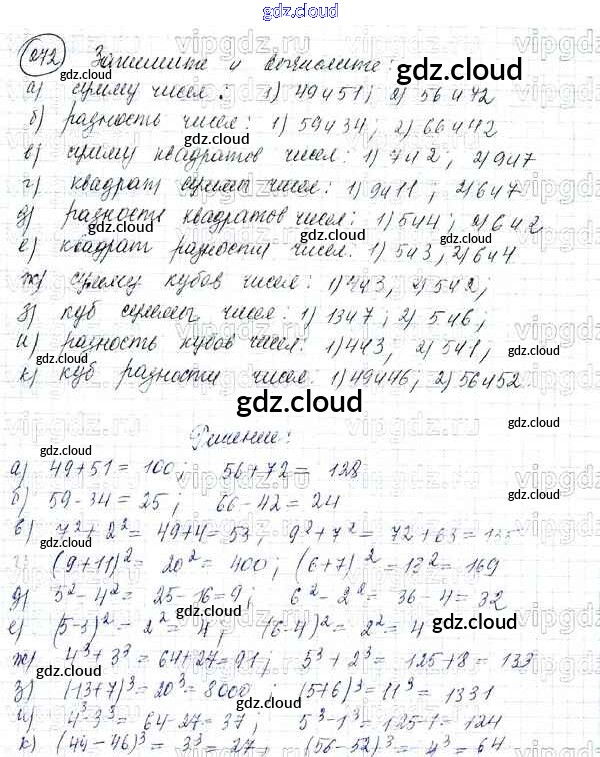 gdz.cloud
272 Запишите и вычислите:
а) сумму чисел: 1) 49 и 51; 2) 56 и 72
б) разность чисел: 1) 59 и 34, 2) 66 и 42
в) сумму квадратов чисел: 1) 7 и 2; 2) 9 и 7
г) квадрат суммы чисел: 1) 9 и 11; 2) 6 и 7
д) разности квадратов чисел: 1) 5 и 4; 2) 6 и 2
е) квадрат разности чисел: 1) 5 и 3, 2) 6 и 4
ж) сумму кубов чисел: 1) 4 и 3, 2) 5 и 2;
з) куб суммы чисел: 1) 13 и 7; 2) 5 и 6;
и) разность кубов чисел: 1) 4 и 3, 2) 5 и 1;
к) куб разности чисел: 1) 49 и 46, 2) 56 и 52.
gdz.cloud
Решение:
а) 49+51=100; 56+72=128
б) 59-34=25; 66-42=24
в) 7²+2²=49+4=53, 9²+7²=72+63=
г) (9+11)²=20²=400; (6+7)²=13²=169
д) 5²-4²=25-16=9; 6²-2²=36-4=32
е) (5-3)²=2²=4; (6-4)²=2²=4
ж) 4³+3³=64+27=91; 5³+2³=125+8=133
з) (13+7)³=20³=8000; (5+6)³=11³=1331
и) 4³-3³=64-27=37; 5³-1³=125-1=124
к) (49-46)³=3³=27, (56-52)³=4³=64